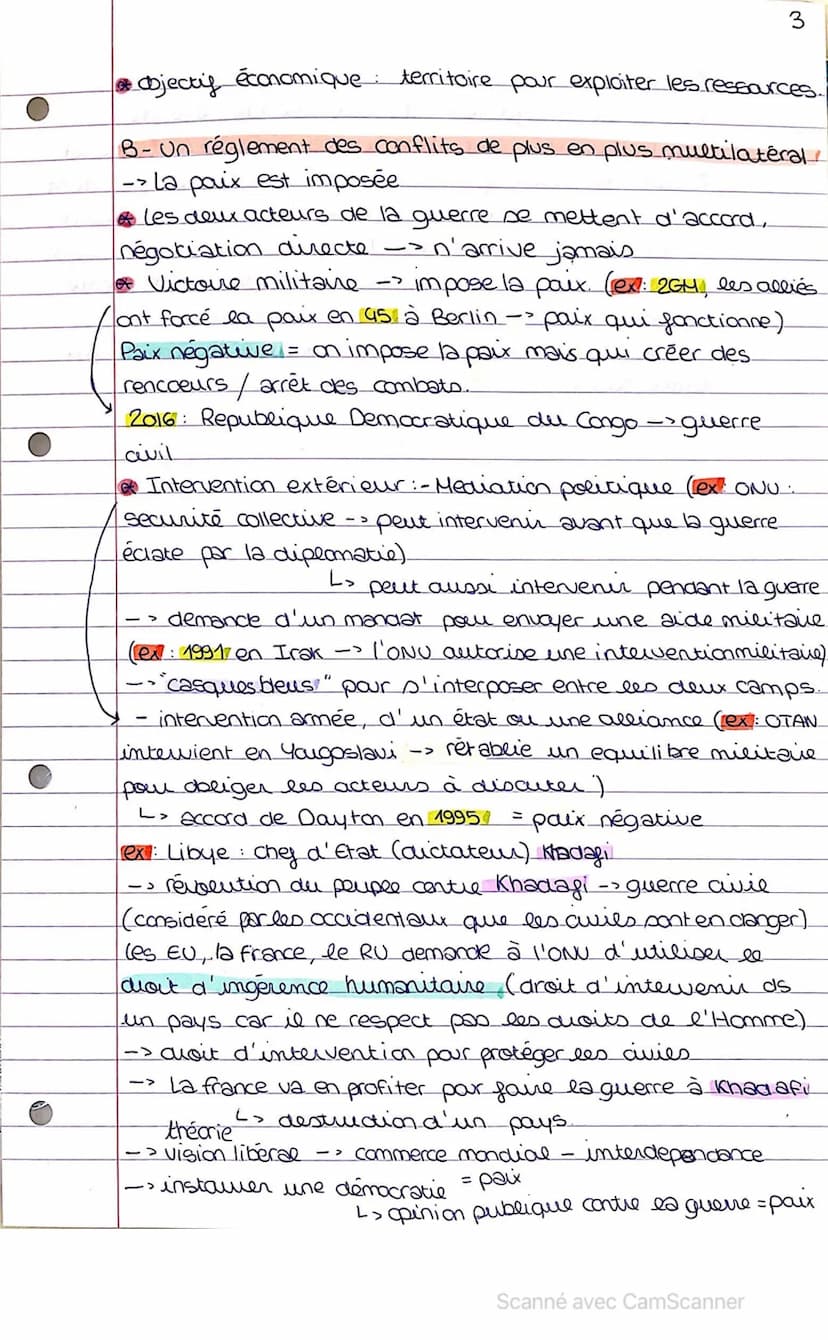 3
* Objectif économique : territoire pour exploiter les ressources.
B- Un réglement des conflits de plus en plus multilatéral
-> La paix est imposée
* Les deux acteurs de la guerre se mettent d'accord,
négotiation directe -> n'arrive jamais
* Victoire militaire -> impose la paix. (ex : 2GM, les alliés
ont forcé la paix en 45 à Berlin -> paix qui fonctionne)
Paix négative = on impose la paix mais qui créer des
rencoeurs / arrêt des combats.
2016 : Republique Democratique du Congo -> guerre
civil
* Intervention extérieur : - Mediation politique (ex : ONU :
securité collective -> peut intervenir avant que la guerre
éclate par la diplomatie)
↳ peut aussi intervenir pendant la guerre
-> demande d'un mandat pour envoyer une aide militaire
(ex : 1991 en Irak -> l'ONU autorise une intervention militaire)
-> "casques bleus" pour s'interposer entre les deux camps.
- intervention armée, d'un état ou une alliance (ex : OTAN
intervient en Yougoslavi -> rétablie un equilibre militaire
pour obliger les acteurs à discuter)
↳ accord de Dayton en 1995 = paix négative
ex : Libye : chef d'Etat (dictateur) Khadafi
-> révolution du peuple contre Khadafi -> guerre civile
(considéré par les occidentaux que les civils sont en danger)
Les EU, la France, le RU demande à l'ONU d'utiliser le
droit d'ingérence humanitaire, (droit d'intervenir ds
un pays car il ne respect pas les droits de l'Homme)
-> droit d'intervention pour protéger les civils
-> La france va en profiter par faire la guerre à Khadafi
↳ destruction d'un pays.
théorie
-> vision libéral -> commerce mondial - interdependance
= paix
-> instaurer une démocratie
↳ opinion publique contre la guerre = paix
Scanné avec CamScanner